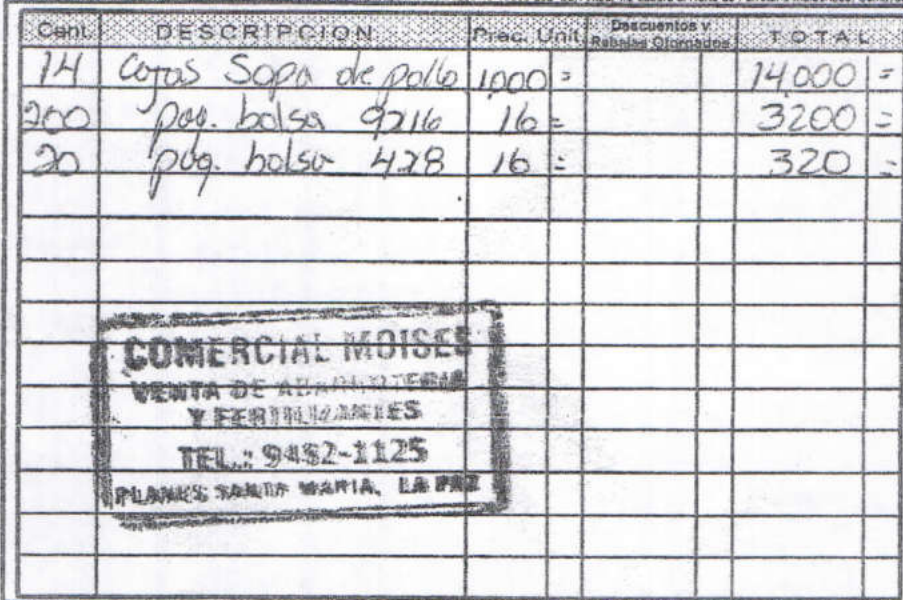 Cant. DESCRIPCION Prec. Unit. Descuentos y Rebajas Otorgados TOTAL
14 Cajas Sopa de pollo 1,000 = 14,000 =
200 paq. bolsa 9x16 16 = 3200 =
20 paq. bolsa 4x8 16 = 320 =
COMERCIAL MOISES
VENTA DE ABARROTERIA
Y FERTILIZANTES
TEL.: 9452-1125
PLANES SANTA MARIA, LA PAZ